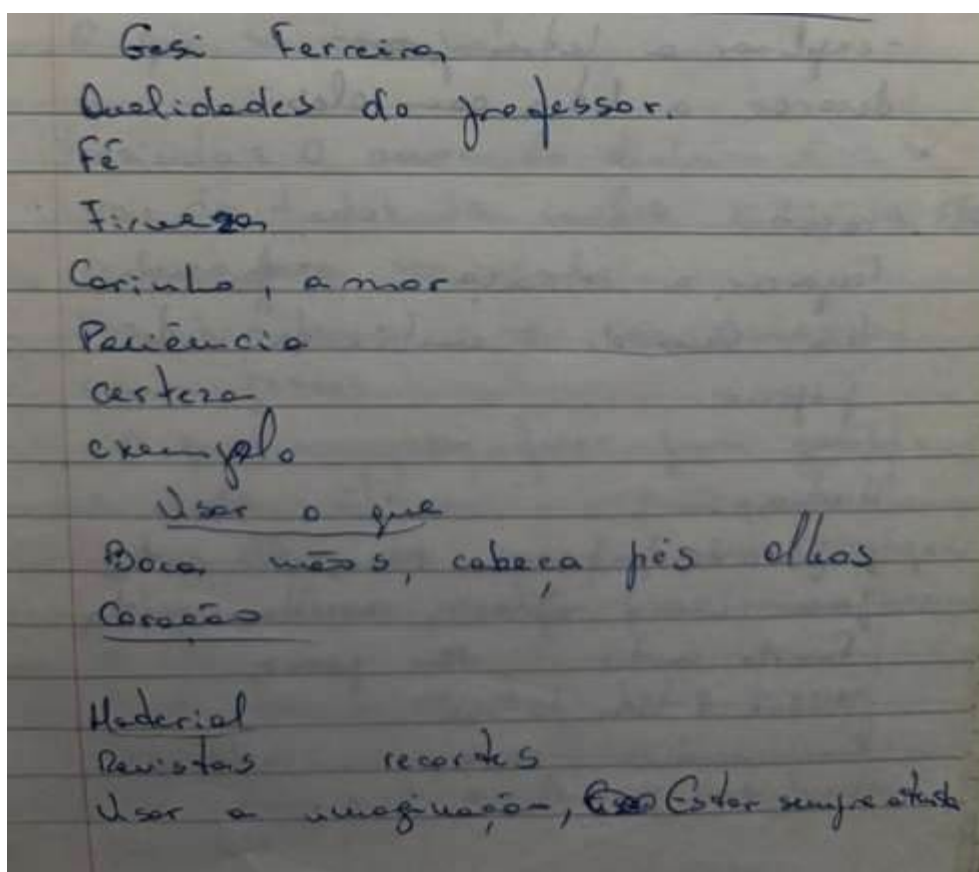 Gesi Ferreira
Qualidades do professor.
Fé
Firmeza
Carinho, amor
Paciência
certeza
exemplo
Usar o que
Boca mãos, cabeça pés olhos
Coração
Material
Revistas recortes
Usar a imaginação, Estar sempre atento